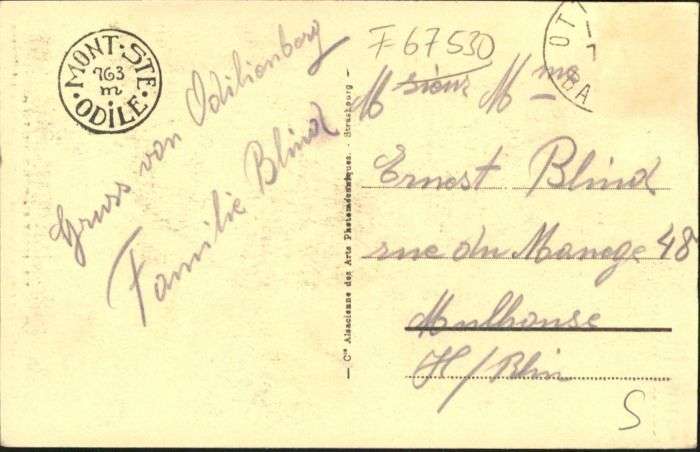 MONT·STE·ODILE·
763
m
Gruss von Odilienberg
Familie Blind
— Cie Alsacienne des Arts Photomécaniques. - Strasbourg —
F 67530
Msieur Mme
Ernest Blind
rue du Manege 48
Mulhouse
H/Rhin
S
OTT
BA